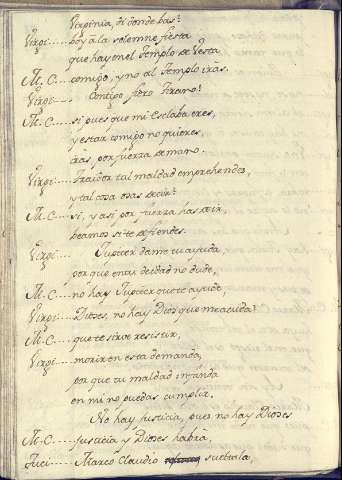 Virginia, di donde bas?
Virgi.... boy a la solemne fiesta
que hay en el Templo de Vesta
M. C.... comigo, y no al Templo irás.
Virgi.... Contigo fiero tirano?
M. C.... si pues que mi Esclaba eres,
y estar comigo no quieres,
irás, por fuerza de mano.
Virgi.... Traidor tal maldad emprehendes,
y tal cosa osas decir?
M. C.... si, y así por fuerza has de ir,
beamos si te defiendes.
Virgi.... Jupiter dame tu ayuda
por que en tu deidad no dude,
M. C.... no hay Jupiter que te ayude,
Virgi.... Dioses, no hay Dios que me acuda?
M. C.... que te sirve resistir,
Virgi.... morir en esta demanda,
por que tu maldad infanda
en mi no puedas cumplir.
No hay Justicia, pues no hay Dioses
M. C.... Justicia y Dioses habrá,
Juci.... Marco Claudio sueltala,